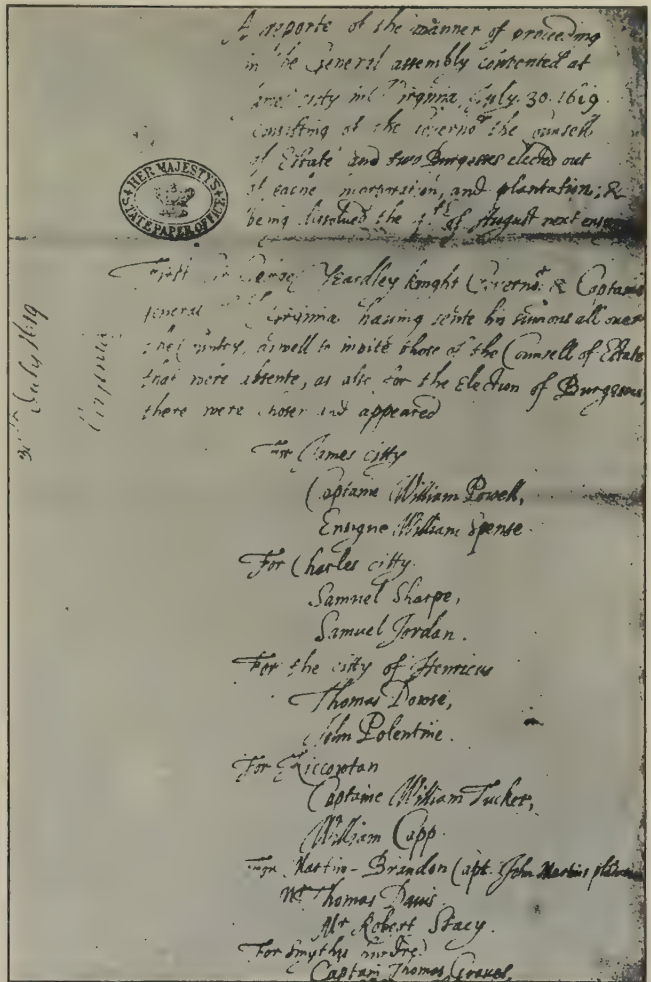 A reporte of the manner of proceeding
in the General assembly convented at
James citty in Virginia, July 30. 1619.
consisting of the Governor, the Counsell
of Estate and two Burgesses elected out
of eache incorporation, and plantation, &
being dissolved the 4th of August next ensu
HER MAJESTY'S
STATE PAPER OFFICE
First Sr George Yeardley knight Governor & Captaine
general of Virginia having sente his summons all over
the Country, aswell to invite those of the Counsell of Estate
that were absente, as also for the Election of Burgesses,
there were chosen and appeared
30th July 1619
Virginia
For James citty
Captaine William Powell,
Ensigne William Spense.
For Charles citty.
Samuel Sharpe,
Samuel Jordan.
For the citty of Henricus
Thomas Dowse,
John Polentine.
For Kiccowtan
Captaine William Tucker,
William Capp.
Martin-Brandon Capt. John Martins planta
Mr Thomas Davis.
Mr Robert Stacy.
For Smythes hundred
Captain Thomas Graves,